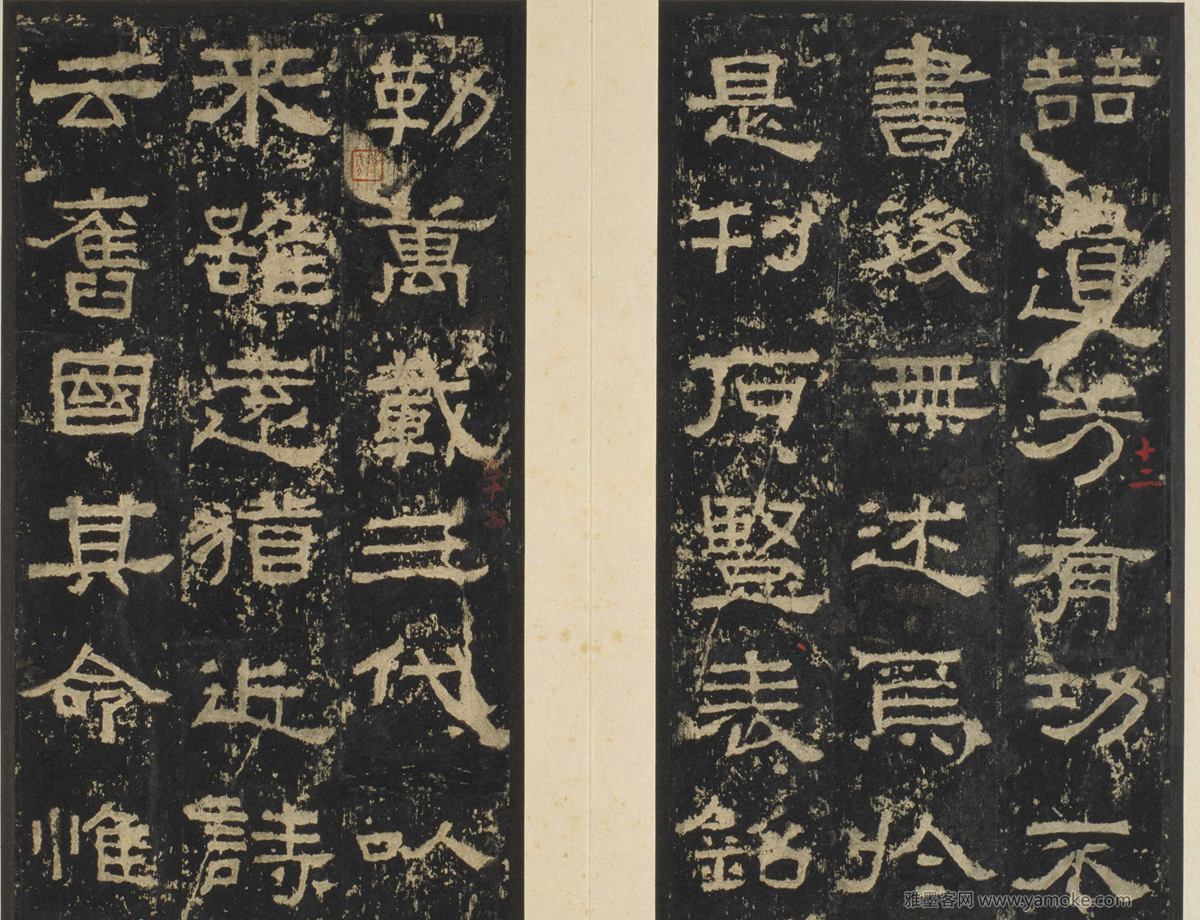 喆遺芳有功不
書後無述焉於
是刊石竪表銘
勒萬載三代以
来雖遠猶近詩
云舊國其命惟
十二
雅墨客网 www.yamoke.com